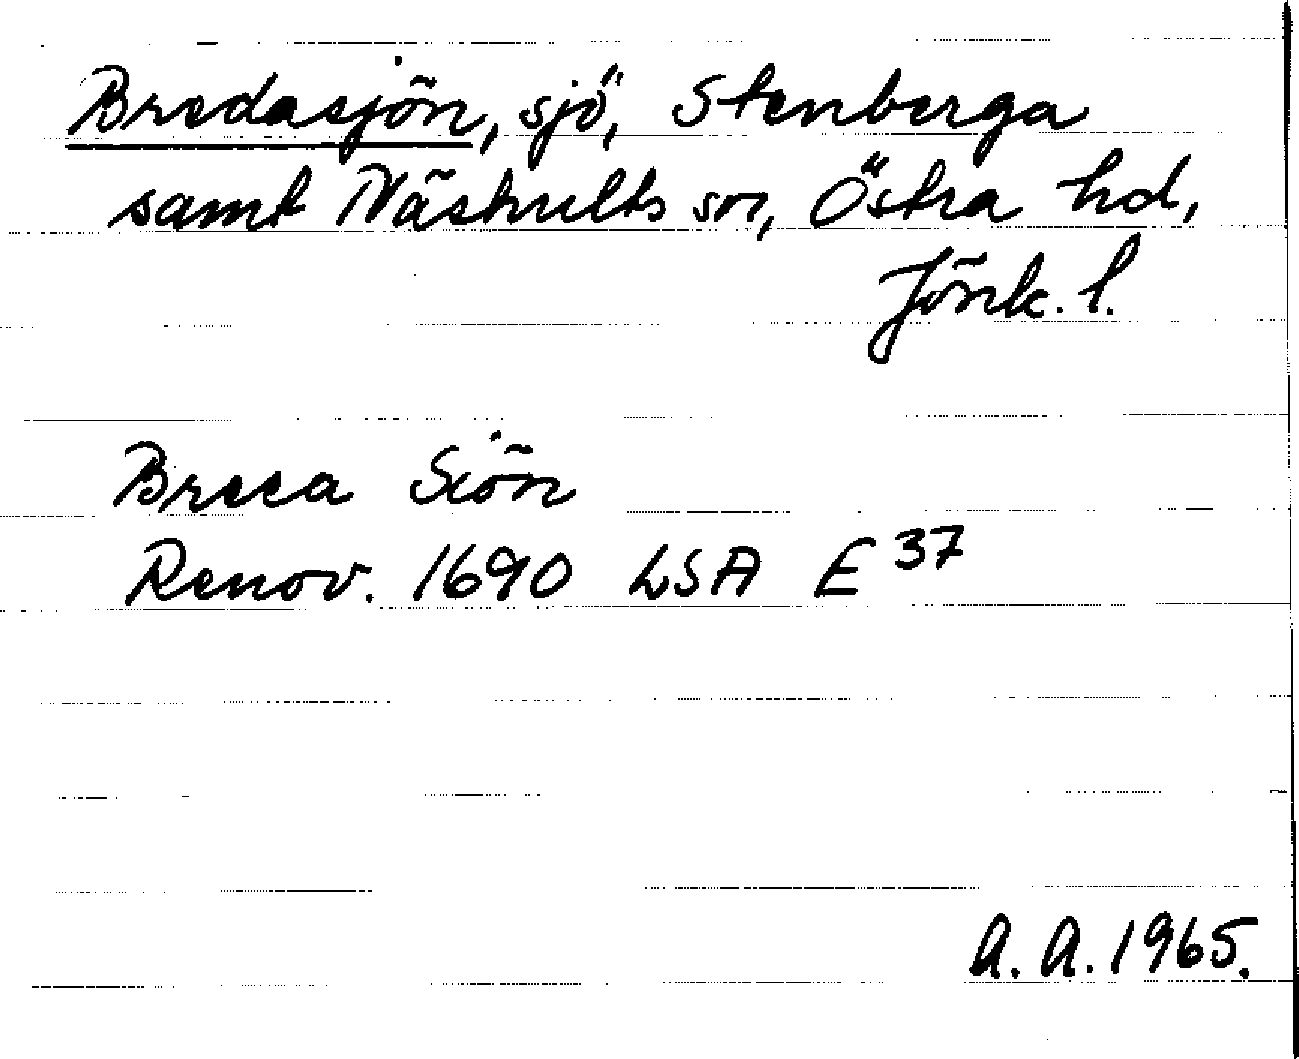 Bredasjön, sjö, Stenberga
samt Näshults snr, Östra hd,
Jönk. l.
Breea Siön
Renov. 1690 LSA E 37
A. A. 1965.